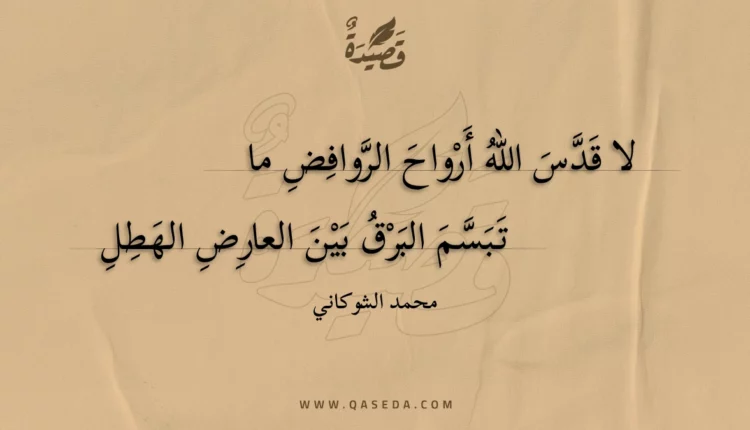 قَصِيدَةٌ
لا قَدَّسَ اللهُ أَرْواحَ الرَّوافِضِ ما
تَبَسَّمَ البَرْقُ بَيْنَ العارِضِ الهَطِلِ
محمد الشوكاني
WWW.QASEDA.COM